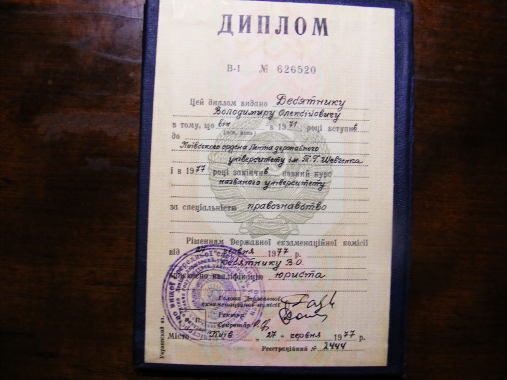 ДИПЛОМ
В-І № 626520
Цей диплом видано Десятнику
Володимиру Олексійовичу
в тому, що він в 1971 році вступив
до
Київського ордена Леніна державного
університету ім. Т.Г. Шевченка
і в 1977 році закінчив повний курс
названого університету
за спеціальністю правознавство
Рішенням Державної екзаменаційної комісії
від 24 червня 1977 р.
Десятнику В.О.
присвоєно кваліфікацію юриста
Голова Державної
екзаменаційної комісії
Ректор
Секретар
Місто Київ „ 27 " червня 1977 р.
Реєстраційний № 2444
Украинский яз.